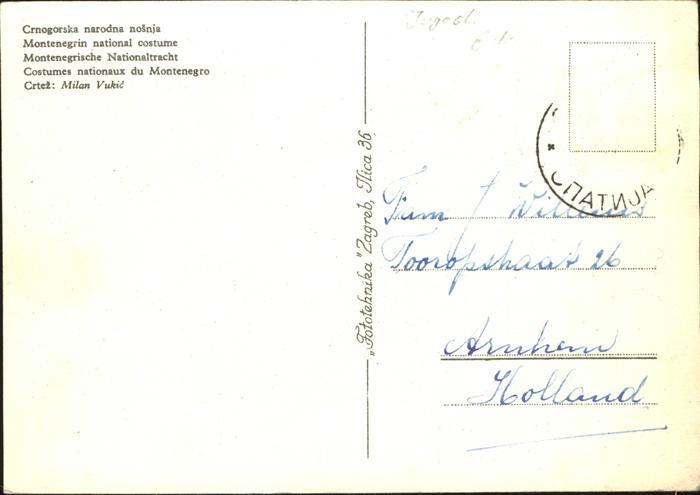 Crnogorska narodna nošnja
Montenegrin national costume
Montenegrische Nationaltracht
Costumes nationaux du Montenegro
Crtež: Milan Vukić
„Fototehnika" Zagreb, Ilica 36
Jugosl.
ОПАТИЈА
Fam
Tooropstraat 26
Arnhem
Holland